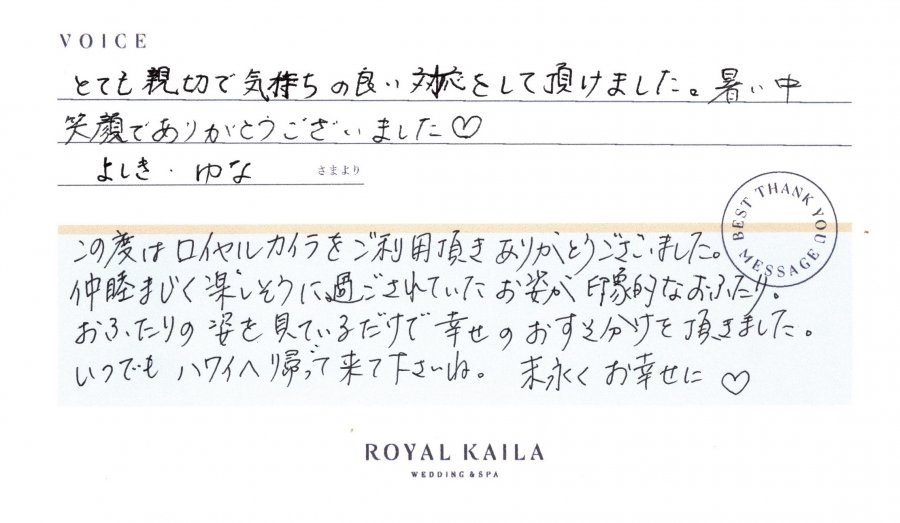 VOICE
とても親切で気持ちの良い対応をして頂けました。暑い中
笑顔でありがとうございました♡
よしき・ゆな さまより
BEST THANK YOU MESSAGE
この度はロイヤルカイラをご利用頂きありがとうございました。
仲睦まじく楽しそうに過ごされていたお姿が印象的なおふたり。
おふたりの姿を見ているだけで幸せのおすそ分けを頂きました。
いつでもハワイへ帰って来て下さいね。 末永くお幸せに♡
ROYAL KAILA
WEDDING & SPA